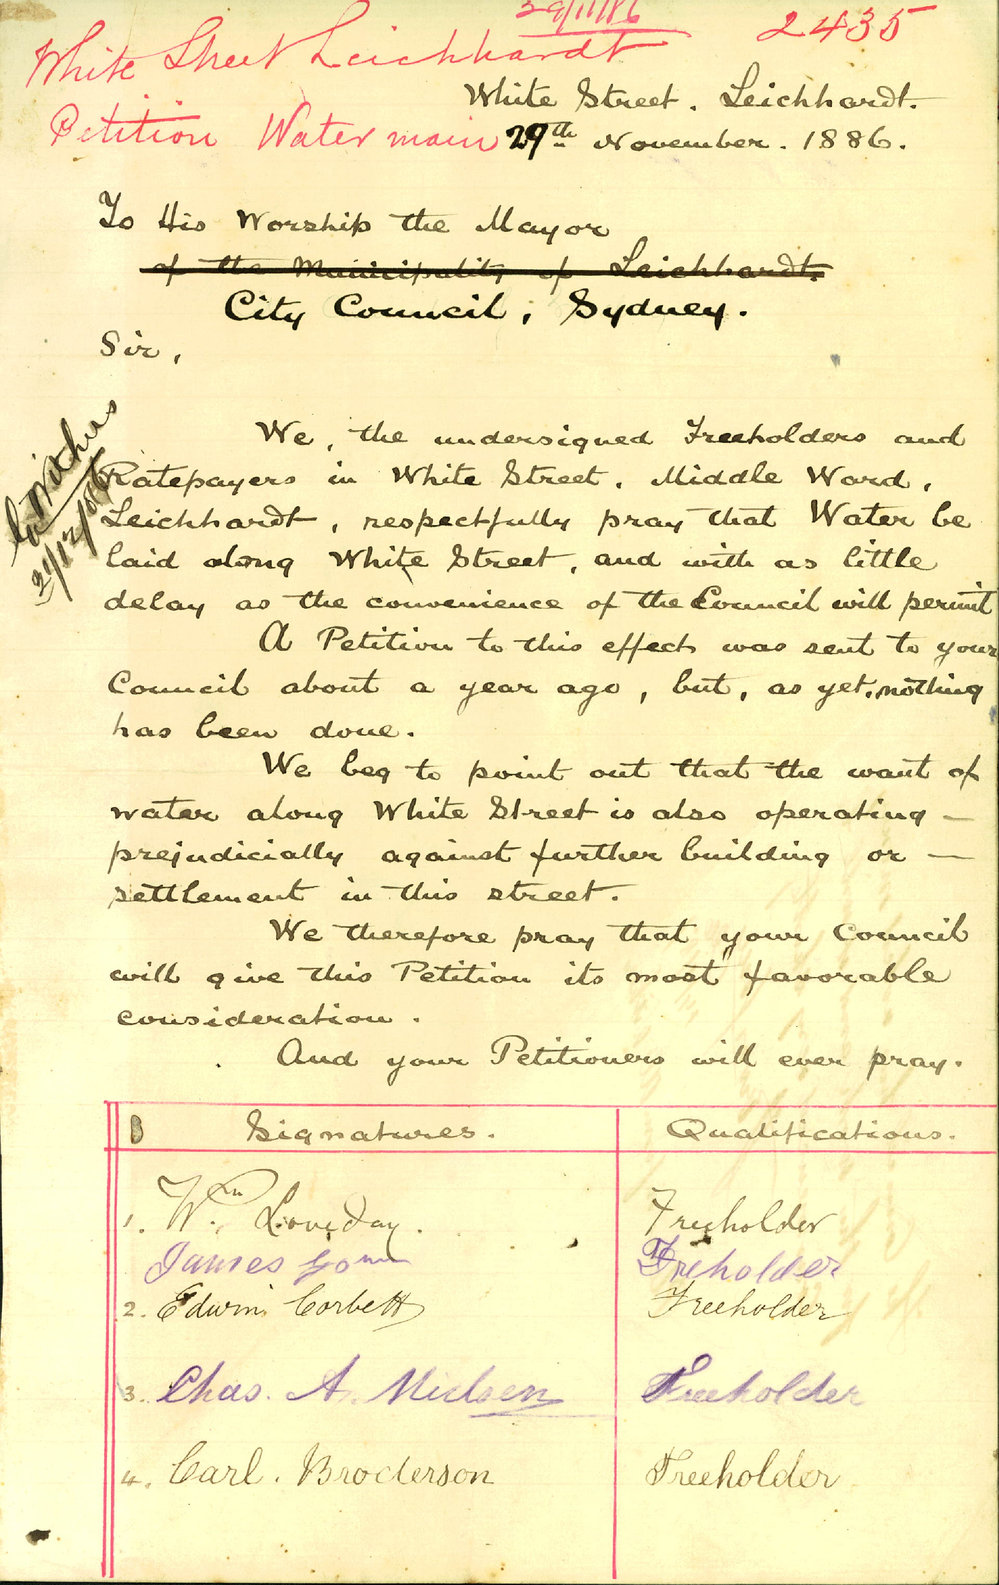 29/11/86
2435
White Street Leichhardt
White Street. Leichhardt.
Petition Water main
29th November. 1886.
To His Worship the Mayor
of the Municipality of Leichhardt.
City Council, Sydney.
Sir,
We, the undersigned Freeholders and
Ratepayers in White Street, Middle Ward,
Leichhardt, respectfully pray that Water be
laid along White Street, and with as little
delay as the convenience of the Council will permit
A Petition to this effect was sent to your
Council about a year ago, but, as yet, nothing
has been done.
We beg to point out that the want of
water along White Street is also operating —
prejudicially against further building or —
settlement in this street.
We therefore pray that your Council
will give this Petition its most favorable
consideration.
And your Petitioners will ever pray.
Signatures. Qualifications.
1. Wm. Loveday. Freeholder
James Freeholder
2. Edwin Corbett Freeholder
3. Chas. A. Nielsen Freeholder
4. Carl. Broderson Freeholder